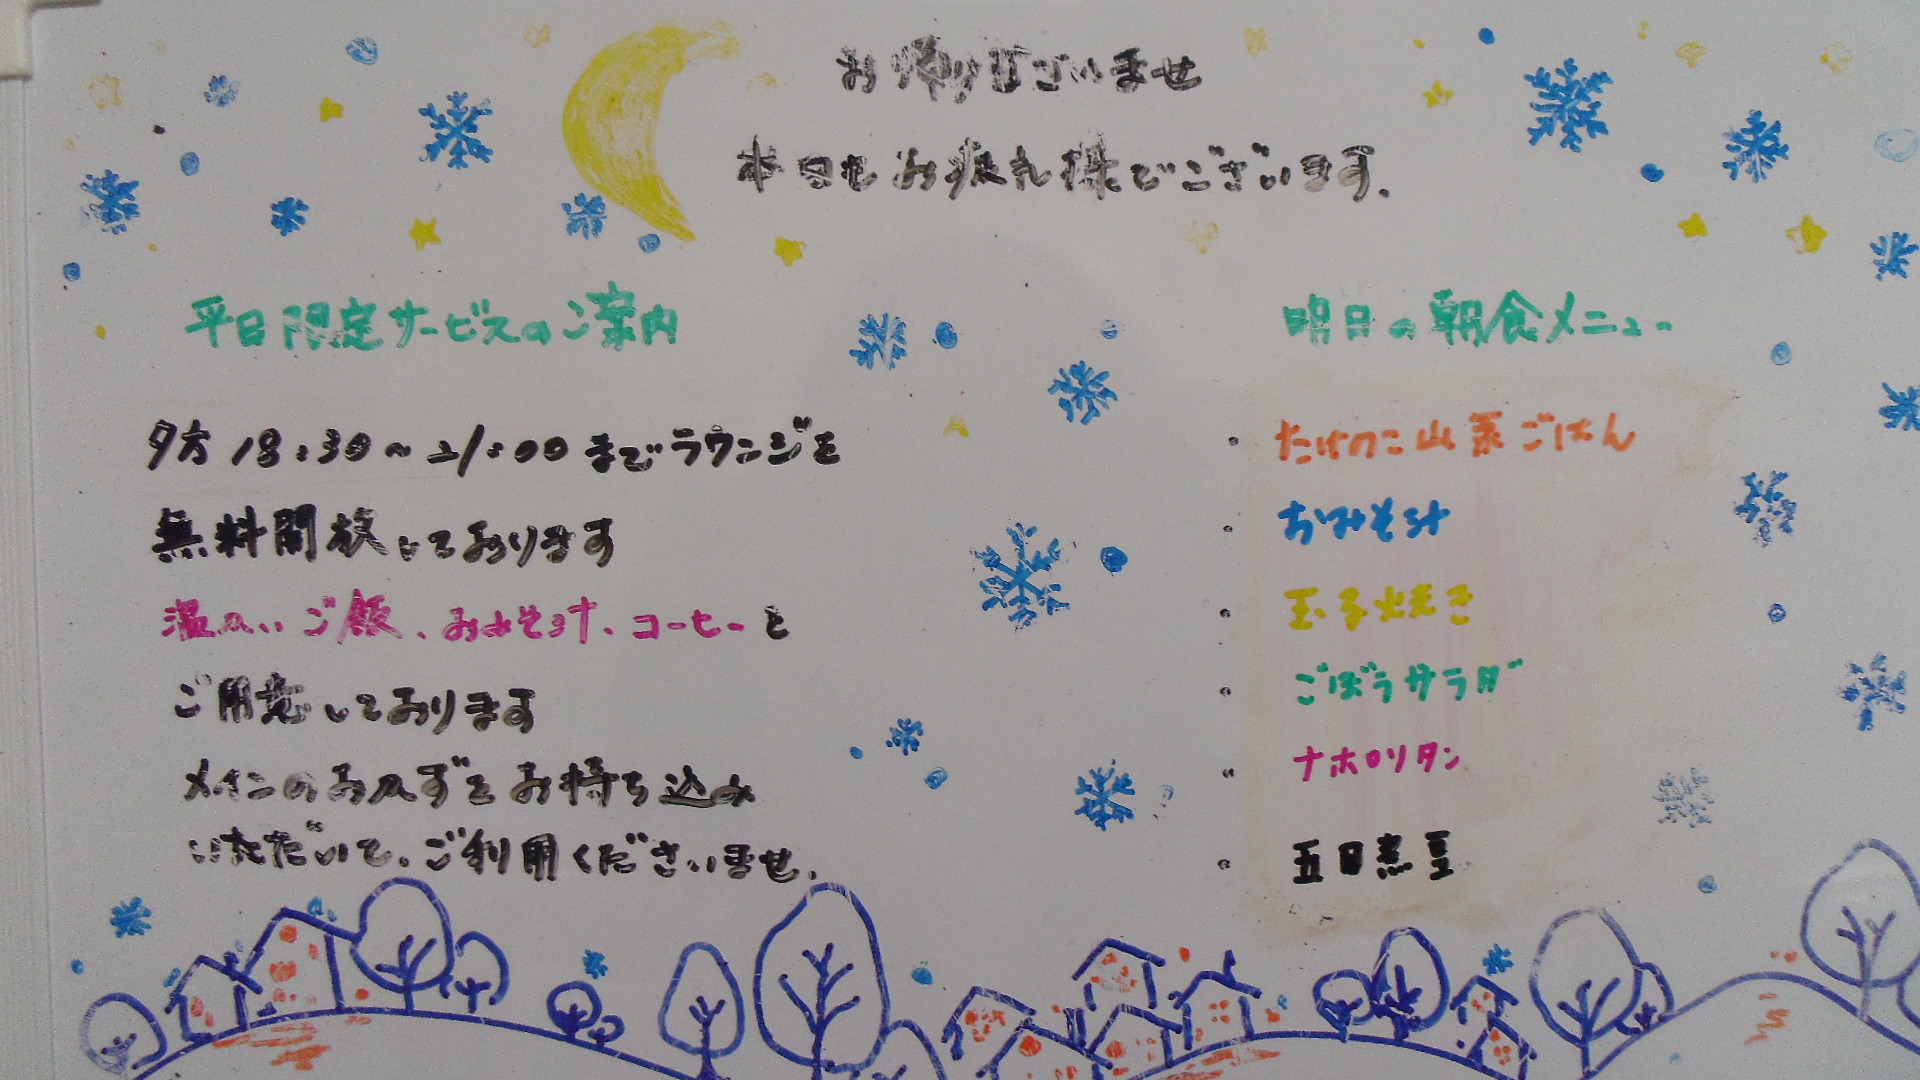 お帰りございませ
本日もお疲れ様でございます.
平日限定サービスのご案内
夕方18:30~21:00までラウンジを
無料開放しております
温かいご飯、おみそ汁、コーヒーを
ご用意しております
メインのおかずをお持ち込み
いただいて、ご利用くださいませ.
明日の朝食メニュー
・たけのこ山菜ごはん
・おみそ汁
・玉子焼き
・ごぼうサラダ
・ナポリタン
・五目煮豆